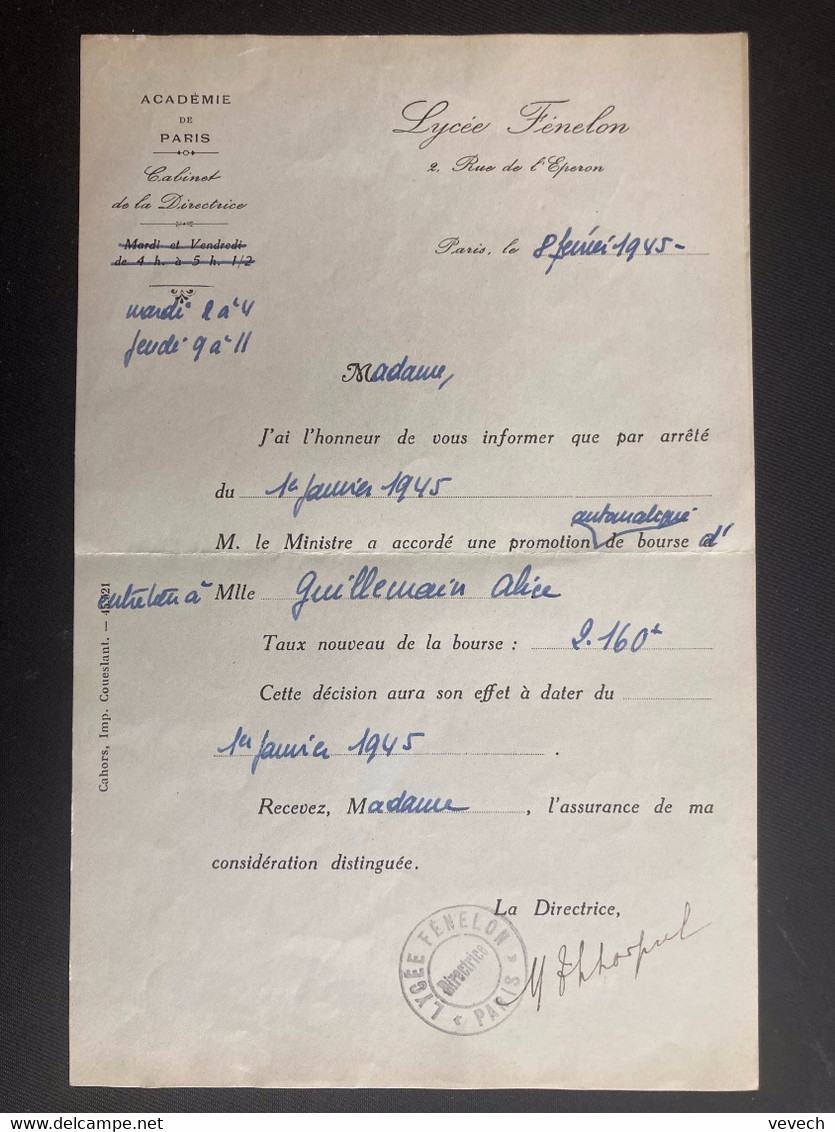 ACADÉMIE
DE
PARIS
Cabinet
de la Directrice
Mardi et Vendredi
de 4 h. à 5 h. 1/2
mardi 2 à 4
jeudi 9 à 11
Lycée Fénelon
2, Rue de l'Eperon
Paris, le 8 février 1945-
Madame,
J'ai l'honneur de vous informer que par arrêté
du 1er Janvier 1945
automatique
M. le Ministre a accordé une promotion de bourse d'
entretien à Mlle Guillemain Alice
Taux nouveau de la bourse : 2.160
Cette décision aura son effet à dater du
1er Janvier 1945 .
Recevez, Madame , l'assurance de ma
considération distinguée.
La Directrice,
LYCÉE FÉNELON
PARIS
Directrice
Cahors, Imp. Coueslant. —
delcampe.net
vevech